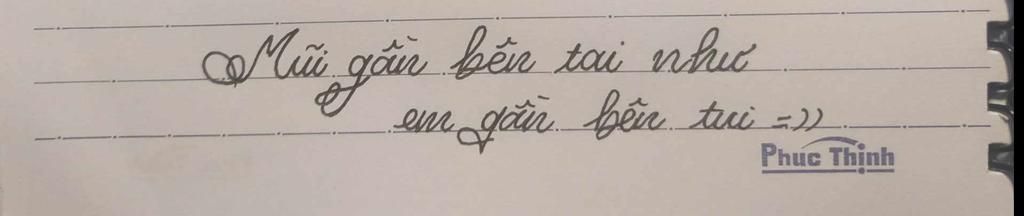 Mũi gần bên tai như
em gần bên tui =))
Phuc Thịnh